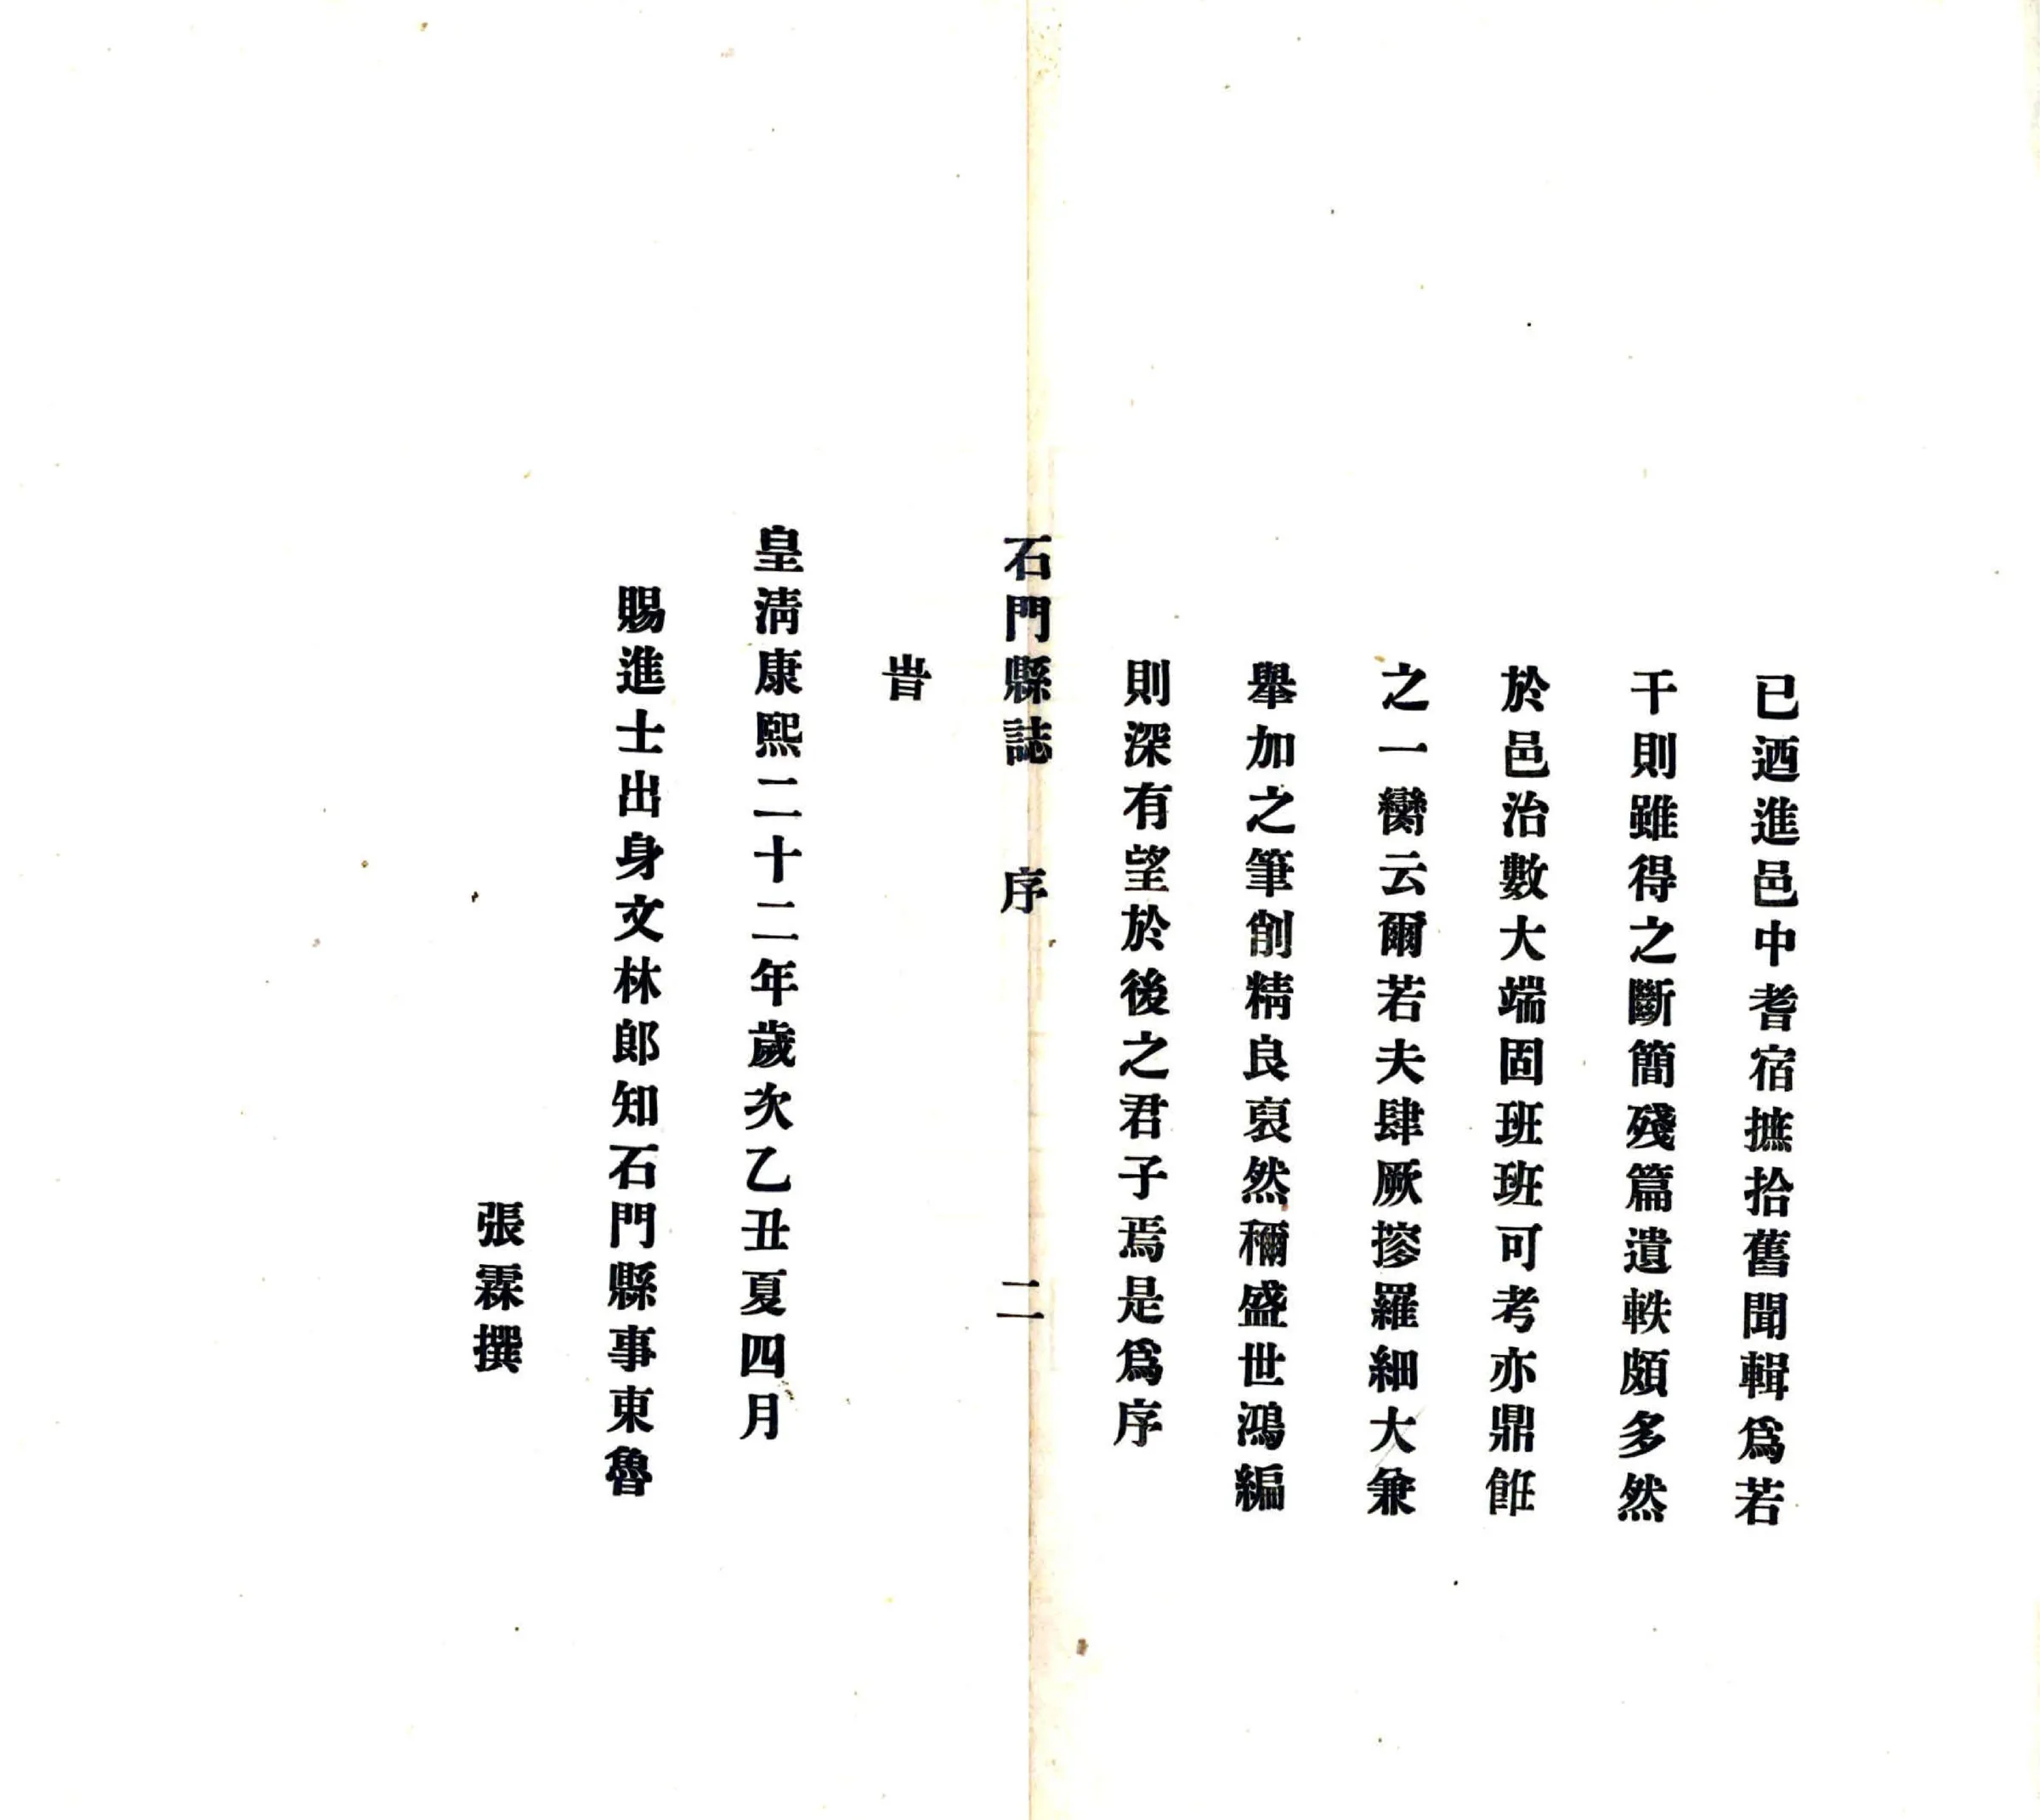 已迺進邑中耆宿摭拾舊聞輯爲若
干則雖得之斷簡殘篇遺軼頗多然
於邑治數大端固班班可考亦鼎飪
之一臠云爾若夫肆厥摻羅細大兼
舉加之筆削精良裒然稱盛世鴻編
則深有望於後之君子焉是爲序
石門縣誌 序 二
旹
皇淸康熙二十二年歲次乙丑夏四月
賜進士出身文林郎知石門縣事東魯
張霖撰